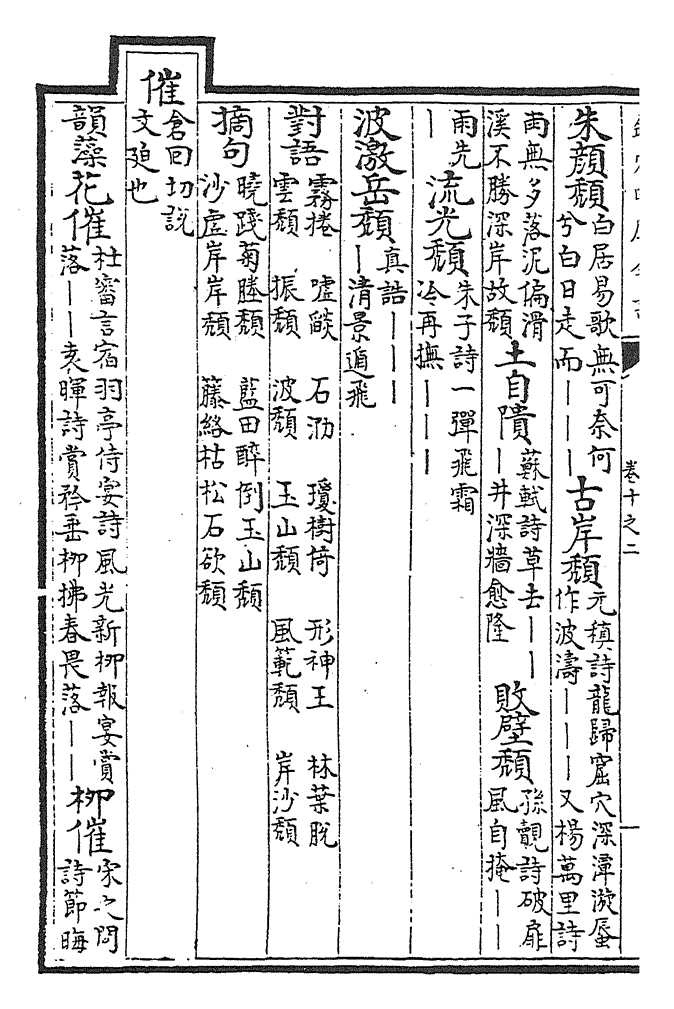 朱顔頽白居易歌無可奈何兮白日走而｜｜｜古岸頽元稹詩龍歸窟穴深潭漩蜃作波濤｜｜｜又楊萬里詩
雨無多落泥偏滑溪不勝深岸故頽土自隤蘇軾詩草去｜｜｜井深牆愈隆敗壁頽孫覿詩破扉風自掩｜｜
雨先｜流光頽朱子詩一彈飛霜冷再撫｜｜｜
波激岳頽真誥｜｜｜｜清景遁飛
對語霧捲雲頽 嘘燄振頽 石泐波頽 瓊樹倚玉山頽 形神王風範頽 林葉脱岸沙頽
摘句曉踐菊塍頽沙虚岸岸頽 藍田醉倒玉山頽籐絡枯松石欲頽
催倉回切説文廹也
韻藻花催杜審言宿羽亭侍宴詩風光新栁報宴賞落｜｜袁暉詩賞矜垂栁拂春畏落｜｜栁催宋之問詩節晦
卷十之二